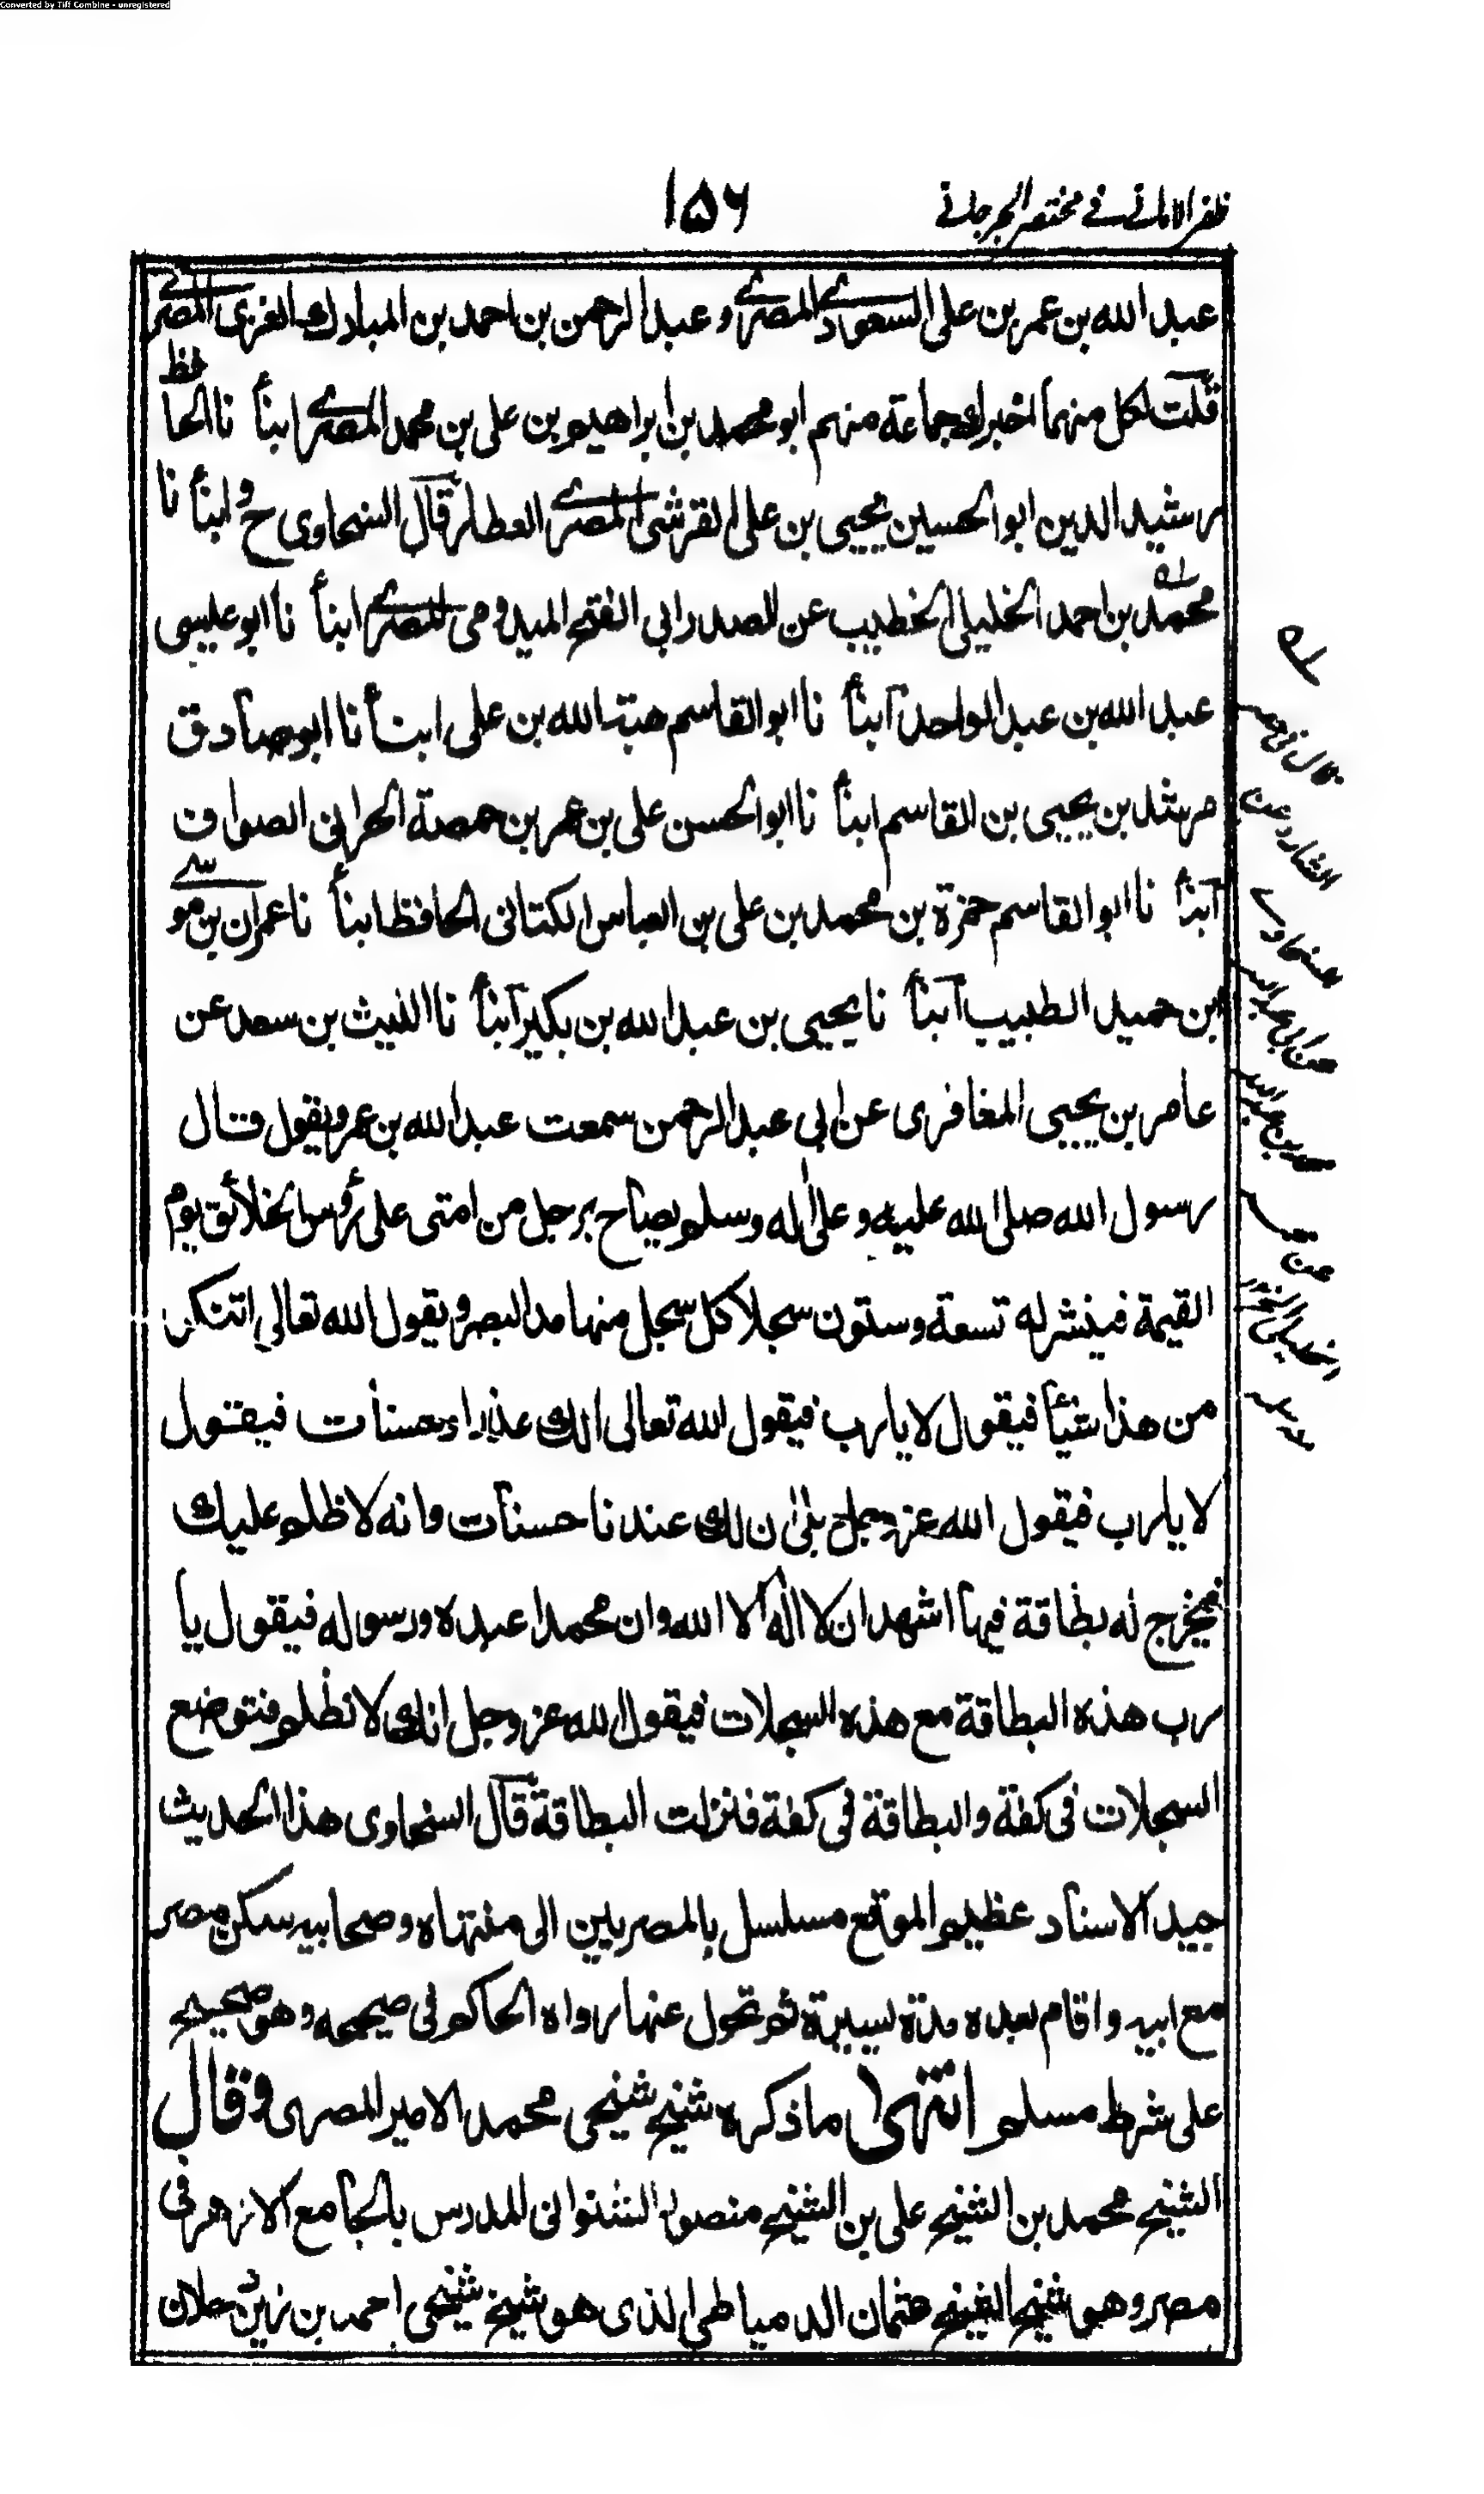 Converted by Tiff Combine - unregistered
ظفر الامانى فى مختصر الجرجانى
١٥٦
عبد الله بن عمر بن على السعودى المصرى و عبد الرحمن بن احمد بن المبارك الغزى المصرى
قلت لكل منهما اخبرك جماعة منهم ابو محمد بن ابراهيم بن على بن محمد المصرى ابنأ نا الحافظ
رشيد الدين ابو الحسين يحيى بن على القرشى المصرى العطار قال السخاوى ح و ابنأ نا
محمد بن احمد الخليلى الخطيب عن الصدر ابى الفتح الميدومى المصرى ابنأ نا ابو عيسى
عبد الله بن عبد الواحد ابنأ نا ابو القاسم هبة الله بن على ابنأ نا ابو صادق
مرشد بن يحيى بن القاسم ابنأ نا ابو الحسن على بن عمر بن حمصة الحرانى الصواف
ابنأ نا ابو القاسم حمزة بن محمد بن على بن العباس الكتانى الحافظ ابنأ نا عمران بن موسى
ابن حميد الطبيب ابنأ نا يحيى بن عبد الله بن بكير ابنأ نا الليث بن سعد عن
عامر بن يحيى المغافرى عن ابى عبد الرحمن سمعت عبد الله بن عمرو يقول قال
رسول الله صلى الله عليه وعلى اله وسلم يصاح برجل من امتى على رؤس الخلائق يوم
القيمة فينشر له تسعة وستون سجلا كل سجل منها مد البصر و يقول الله تعالى اتنكر
من هذا شيئا فيقول لا يا رب فيقول الله تعالى الك عذر او حسنات فيقول
لا يا رب فيقول الله عز وجل بلى ان لك عندنا حسنات وانه لا ظلم عليك
فيخرج له بطاقة فيها اشهد ان لا اله الا الله وان محمدا عبده ورسوله فيقول يا
رب هذه البطاقة مع هذه السجلات فيقول الله عز وجل انك لا تظلم فتوضع
السجلات فى كفة والبطاقة فى كفة فنزلت البطاقة قال السخاوى هذا الحديث
جيد الاسناد عظيم الموقع مسلسل بالمصريين الى منتهاه وصحابيه سكن مصر
مع ابيه واقام بعده مدة يسيرة ثم تحول عنها رواه الحاكم فى صحيحه وهو صحيح
على شرط مسلم انتهى ما ذكره شيخ شيخى محمد الامير المصرى وقال
الشيخ محمد بن الشيخ على بن الشيخ منصور الشنوانى المدرس بالجامع الازهر فى
مصر وهو شيخ الشيخ عثمان الدمياطى الذى هو شيخ شيخى احمد بن زين دحلان